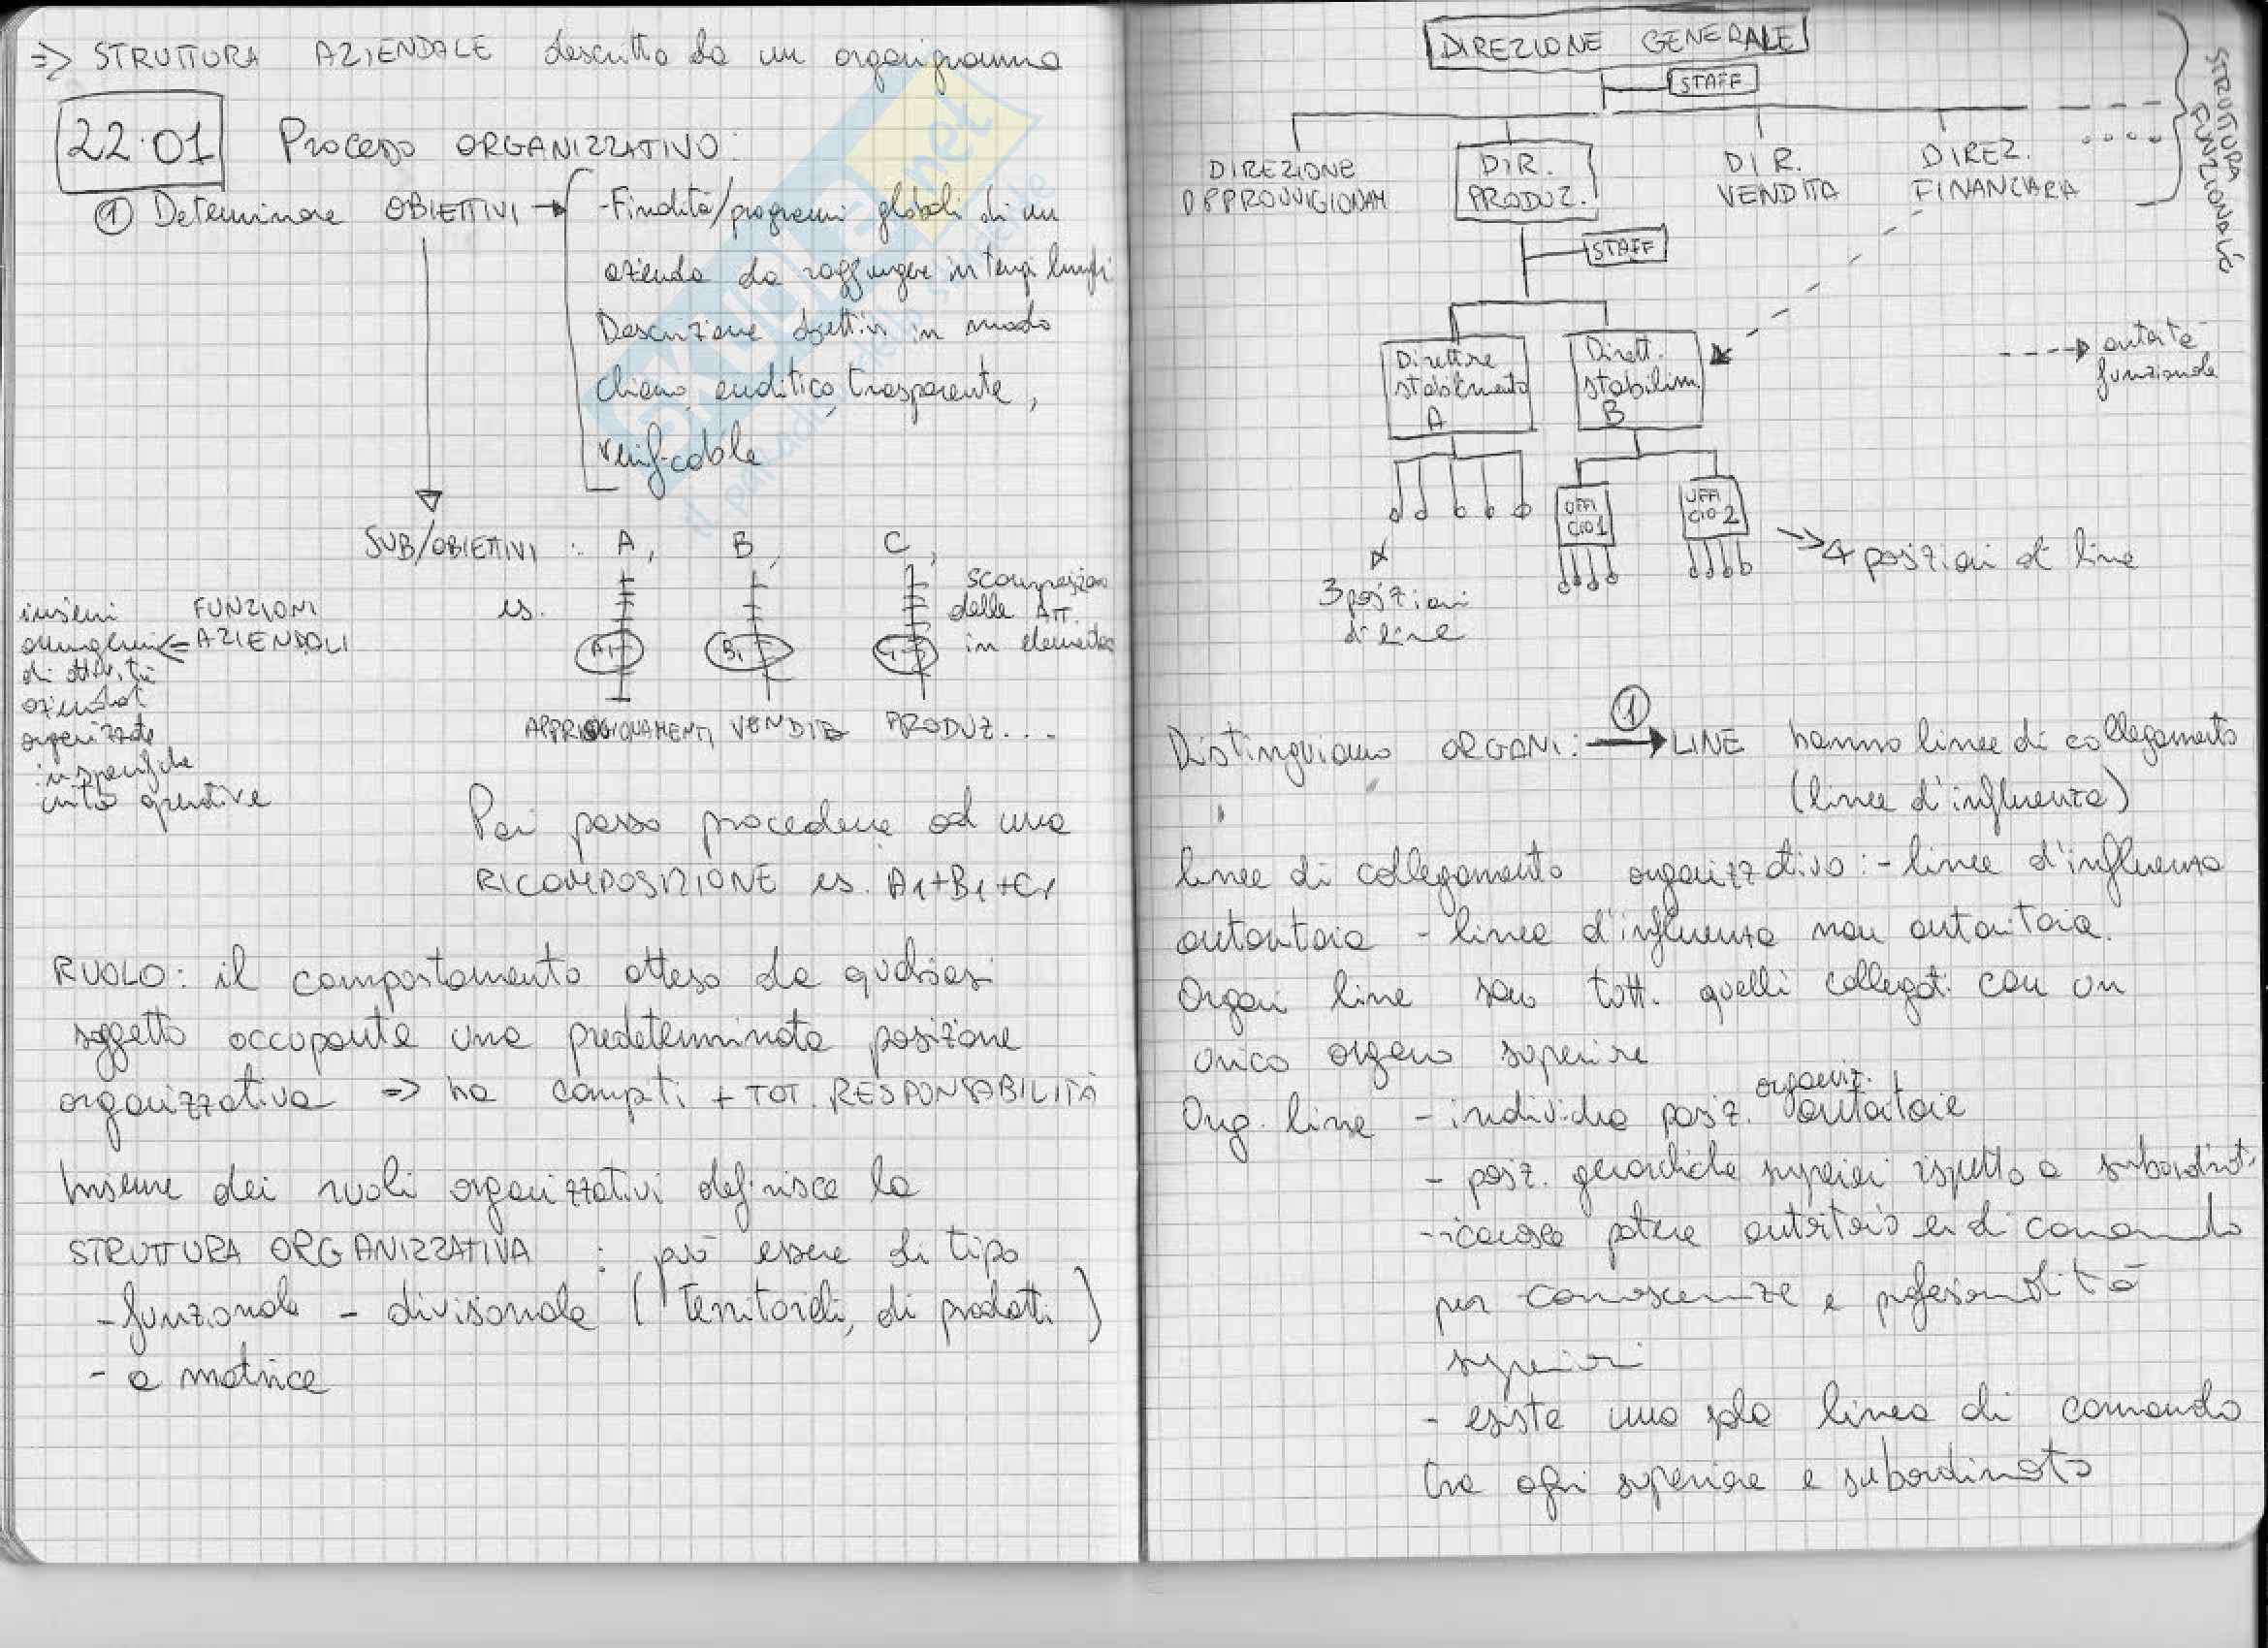 => STRUTTURA AZIENDALE descritta da un organigramma
22.01 Processo ORGANIZZATIVO:
① Determinare OBIETTIVI → -Finalità/programmi globali di un
azienda da raggiungere in tempi lunghi
Descrizione obiettivi in modo
chiaro, analitico, trasparente,
verificabile
SUB/OBIETTIVI : A, B, C,
es.
scomposizione
delle ATT.
in elementari
A1 B1 C1
FUNZIONI
AZIENDALI
insiemi
omogenei
di attività
aziendali
organizzate
in specifiche
unità operative
APPROVVIGIONAMENTI VENDITA PRODUZ. . . .
Poi posso procedere ad una
RICOMPOSIZIONE es. A1+B1+C1
RUOLO: il comportamento atteso da qualsiasi
soggetto occupante una predeterminata posizione
organizzativa => ha compiti + TOT. RESPONSABILITÀ
Insieme dei ruoli organizzativi definisce la
STRUTTURA ORGANIZZATIVA : può essere di tipo
- funzionale - divisionale ( territoriali, di prodotti )
- a matrice
skuola.net
DIREZIONE GENERALE
STAFF
DIREZIONE
APPROVVIGIONAM
DIR.
PRODUZ.
DIR.
VENDITA
DIREZ.
FINANZIARIA
STRUTTURA
FUNZIONALE
STAFF
Direttore
stabilimento
A
Dirett.
stabilim
B
---> autorità
funzionale
UFFI
CIO 1
UFFI
CIO 2
3 posizioni
di line
=> 4 posizioni di line
Distinguiamo ORGANI: ① → LINE hanno linee di collegamento
(linee d'influenza)
linee di collegamento organizzativo: - linee d'influenza
autoritaria - linea d'influenza non autoritaria.
Organi line sono tutti quelli collegati con un
unico organo superiore
Org. line - individua posiz. organiz. autoritarie
- posiz. gerarchiche superiori rispetto a subordinati
- potere autoritario e di comando
per conoscenze e professionalità
superiori
- esiste una sola linea di comando
tra ogni superiore e subordinato